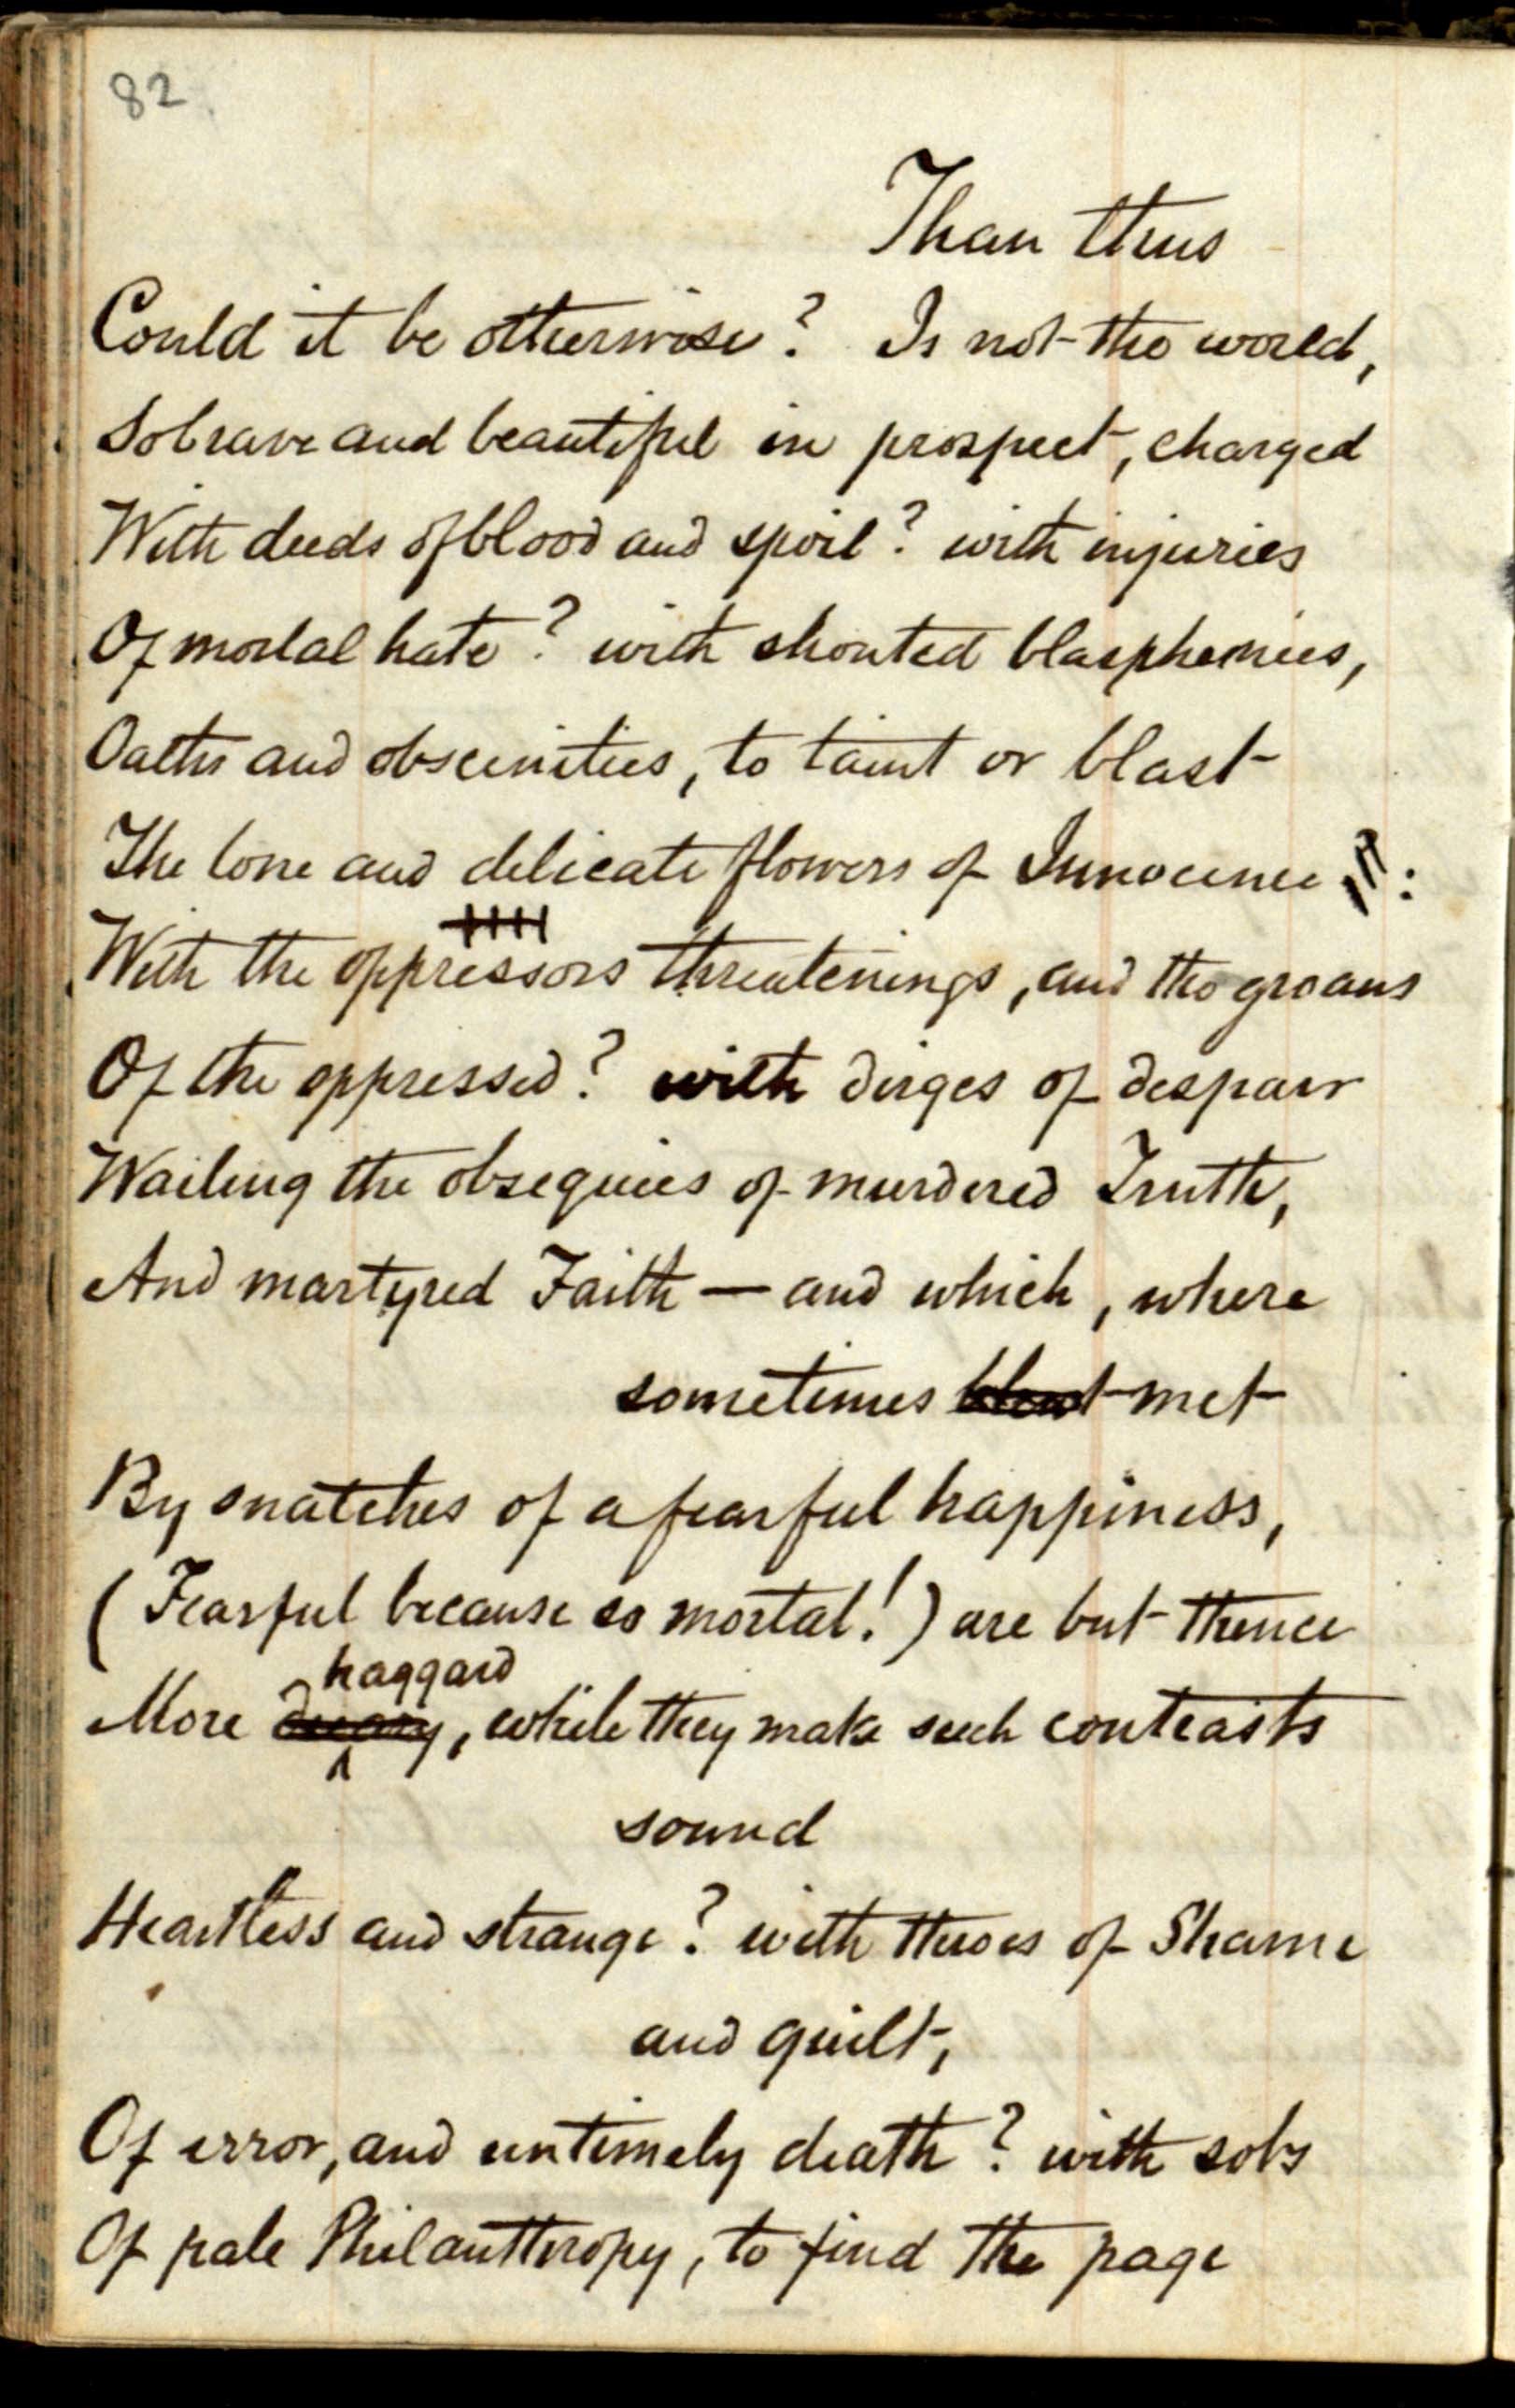 82
Than thus
Could it be otherwise? Is not the world,
So brave and beautiful in prospect, charged
With deeds of blood and spoil? with injuries
Of mortal hate? with shouted blasphemies,
Oaths and obscenities, to taint or blast
The lone and delicate flowers of Innocence :
With the oppressors threatenings, and the groans
Of the oppressed? with dirges of despair
Wailing the obsequies of murdered Truth,
And martyred Faith — and which, where
sometimes met
By snatches of a fearful happiness,
(Fearful because so mortal!) are but thence
haggard
More dreary, while they make such contrasts
sound
Heartless and strange? with throes of Shame
and guilt,
Of error, and untimely death? with sobs
Of pale Philanthropy, to find the page